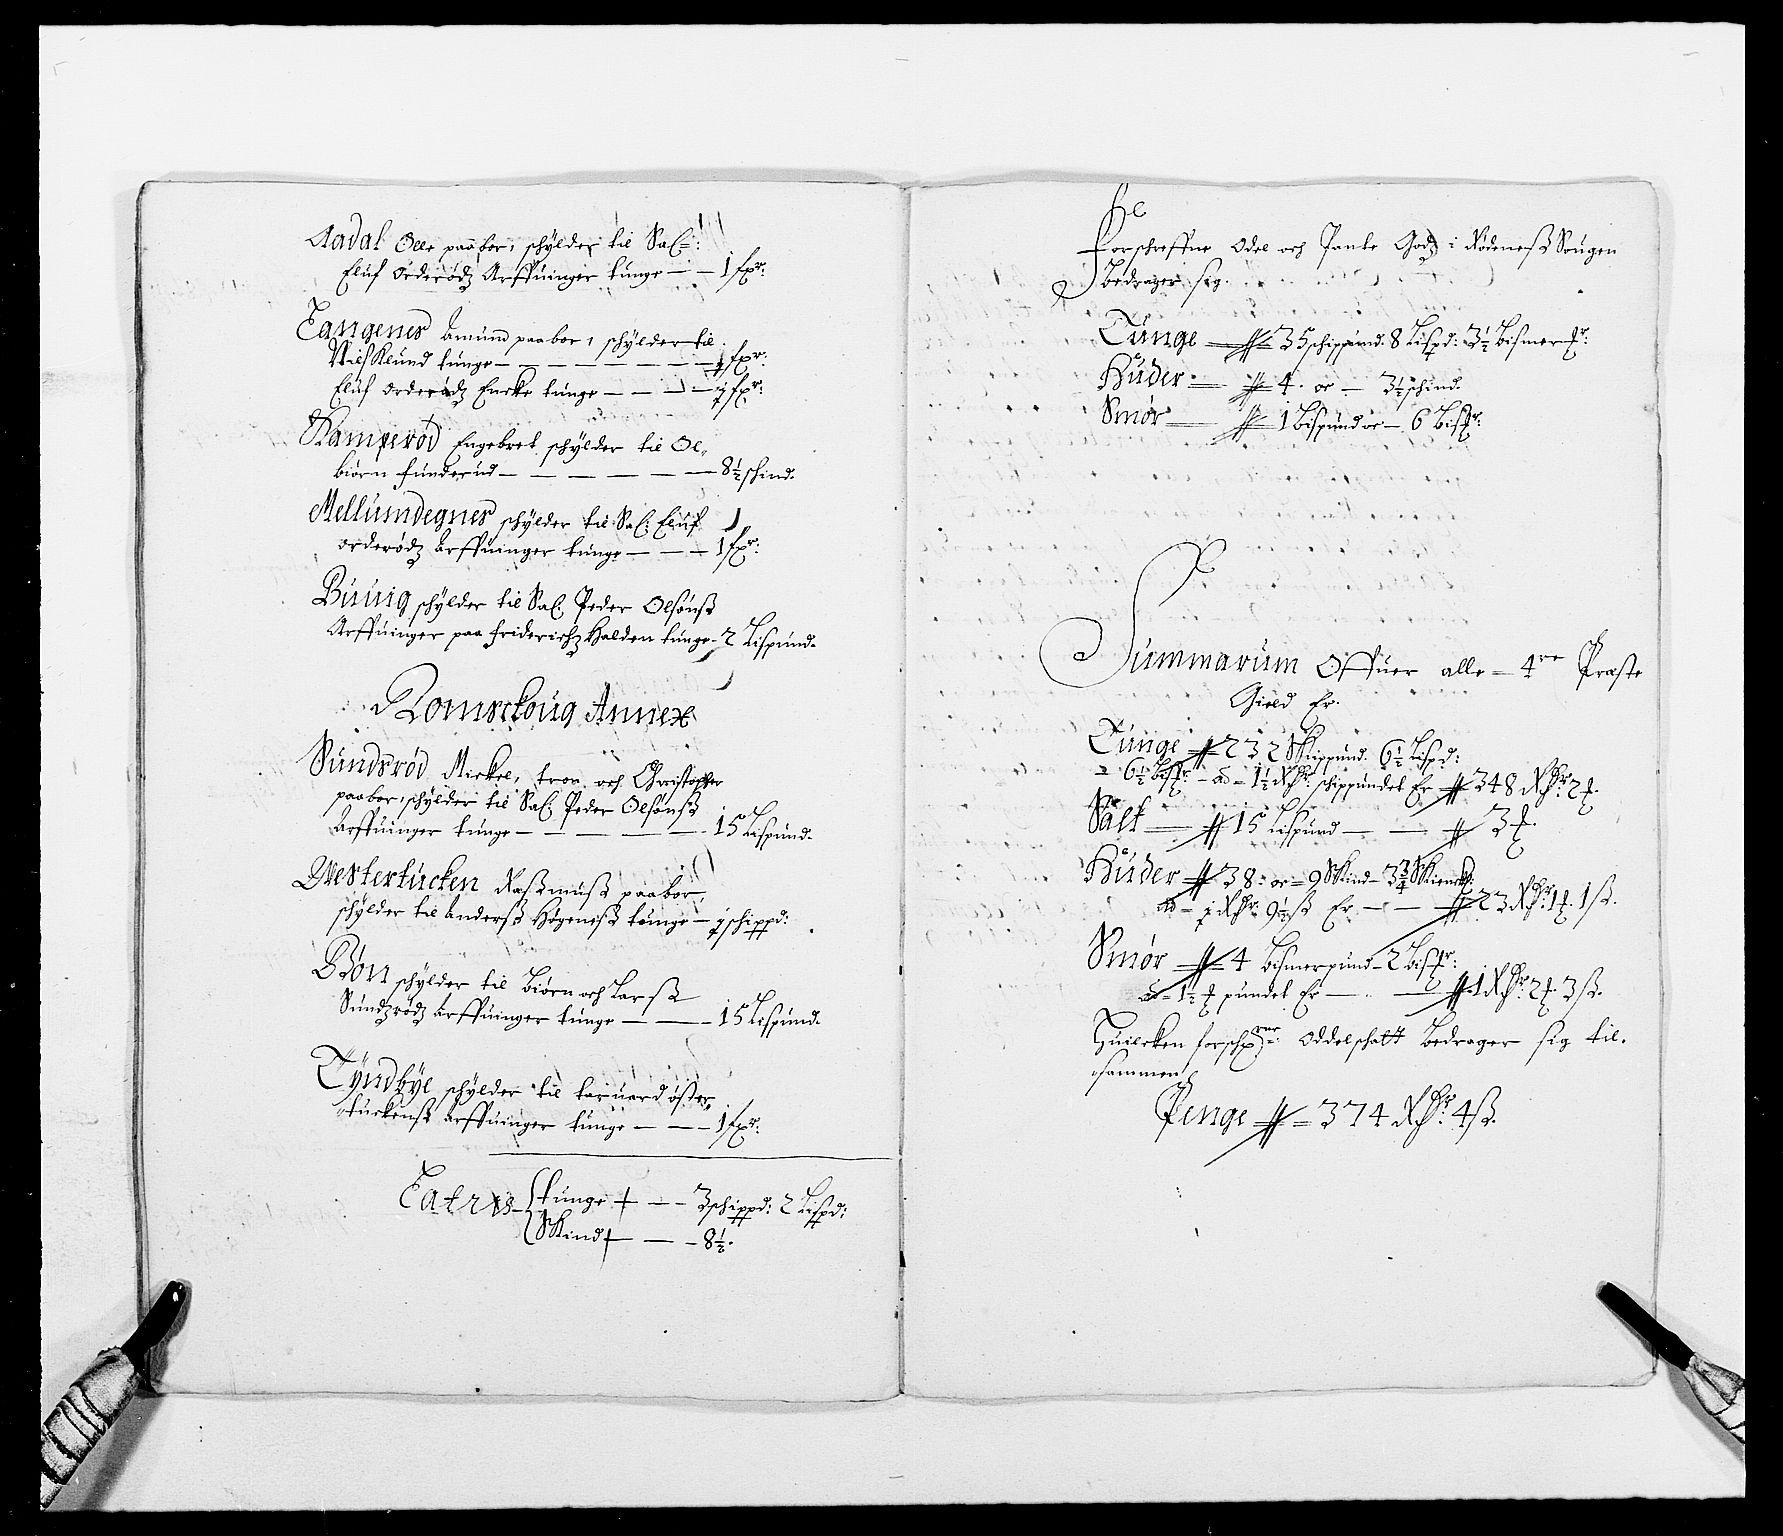 Aadal Olle paaboer, schylder til Sal:
Eluf Orderødz Arffuinger tunge — — 1 fxr:
Tangenes Amund paaboer, schylder til
Nils Klund tunge — — — — — — ½ fxr:
Eluf orderødz Encke tunge — — — ½ fxr:
Kamperød Engebret schylder til Ol,,
biørn funderud — — — — — — 8½ schind.
Mellumdegnes schylder til Sal: Eluf
orderødz Arffuinger tunge — — — 1 fxr:
Buuig schylder til Sal: Peder Olsönß
Arffuinger paa friderichz Halden tunge - 2 Lispund.
Romschoug Annex
Sundsrød Mickel, tron och Christopher
paaboer, schylder til Sal: Peder Olsönß
Arffuinger tunge — — — — — 15 Lispund.
Westertucken Raßmuß paaboer,
schylder til Anderß Høgensß tunge — ½ schippd:
Bøn schylder til Biørn och Larß
Sundzrødz Arffuinger tunge — — — 15 Lispund.
Tyndbyl schylder til taruord ößter,,
tuckenß Arffuinger tunge — — — 1 fxr:
Latris
tunge — — 3 schippd: 2 Lispd:
Skind — — 8½.
forschreffne Odel och Pante Godz i Rødeneß Sougen
Bedrager sig.
Tunge — 35 schippund. 8 Lispd: 3½ Bismer
Huder — 4. oc — 3½ schind.
Smør — 1 Bispund oc — 6 Bis
Summarum Offuer alle = 4re Præste
Gield Er.
Tunge 232 Skippund. 6½ Lispd:
= 6½ Bis — ad = 1½ Rdr. schippundet Er 348 Rdr: 2
Salt — 15 Lispund — — 3
Huder 38: oc = 9 Skind — 3¾
ad — ½ Rdr: 9½ ß Er — — 23 Rdr: 1 . 1 ß.
Smør 4 Bismerpund — 2 Bis
ad = 1½ pundet Er — — 1 Rdr: 2 . 3 ß.
Huilcken forsch: Oddelschatt Bedrager sig til.
sammen
Penge = 374 Rdr: 4 ß.